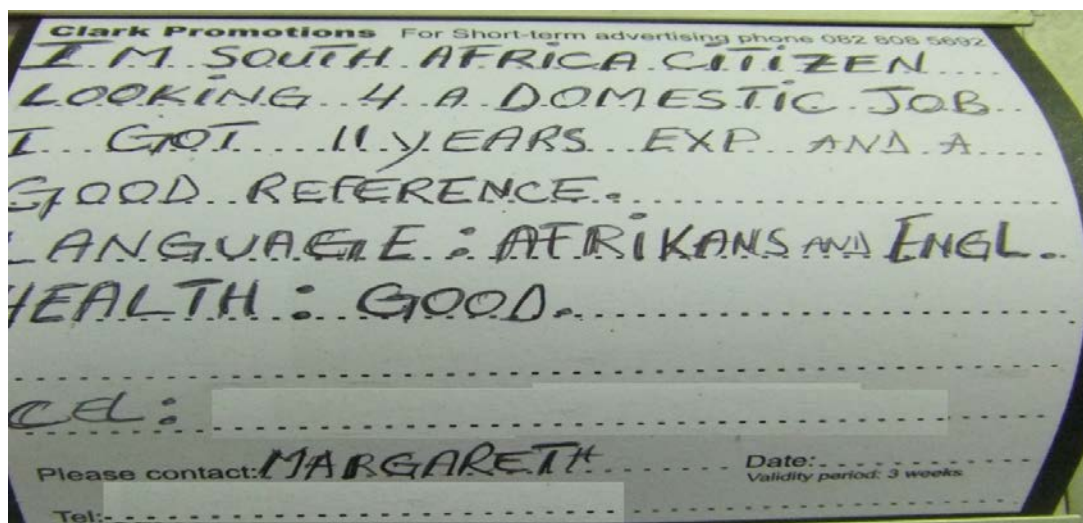 Clark Promotions For Short-term advertising phone 082 808 5692
I M SOUTH AFRICA CITIZEN
LOOKING 4 A DOMESTIC JOB
I GOT 11 YEARS EXP AND A
GOOD REFERENCE.
LANGUAGE : AFRIKANS AND ENGL.
HEALTH : GOOD.
CEL :
Please contact: MARGARETH Date:
Validity period: 3 weeks
Tel: